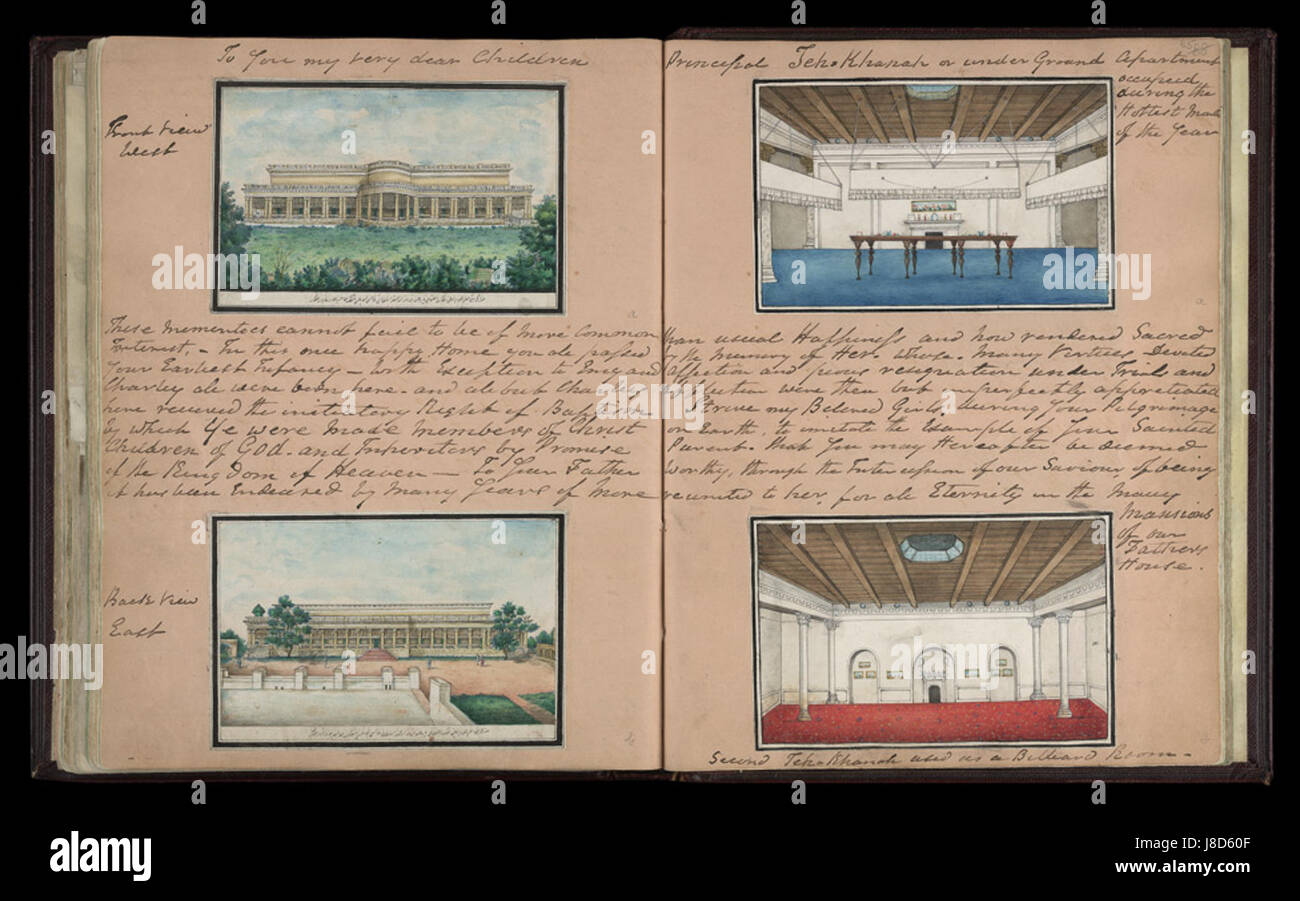 To You my very dear Children
Front View
West
These Mementoes cannot fail to be of more common
Interest, – In this once happy Home you all passed
Your Earliest Infancy – with Exception to Emy and
Charley all were born here – and all but Charley
have received the initiatory Right of Baptism
by which Ye were made Members of Christ
Children of God – and Inheritors by Promise
of the King Dom of Heaven – To Your Father
it has been Endeared by Many Years of More
Back View
East
Principal Teh Khanah or under Ground Apartment
occupied
during the
Hottest
of the Year
than usual Happiness and now rendered Sacred
by the Memory of Her whose Many Virtues – Devoted
Affection and pious resignation under Trials and
were then but imperfectly appreciated
Strive my Beloved Girls during Your Pilgrimage
on Earth, to imitate the Example of Your Sainted
Parent – that You may Hereafter be deemed
Worthy, through the Intercession of our Saviour, of being
reunited to her, for all Eternity in the Many
Mansions
of our
Fathers
House.
Second Teh Khanah used as a Billiard Room –
a
b
a
alamy
alamy stock photo
J8D60F
www.alamy.com